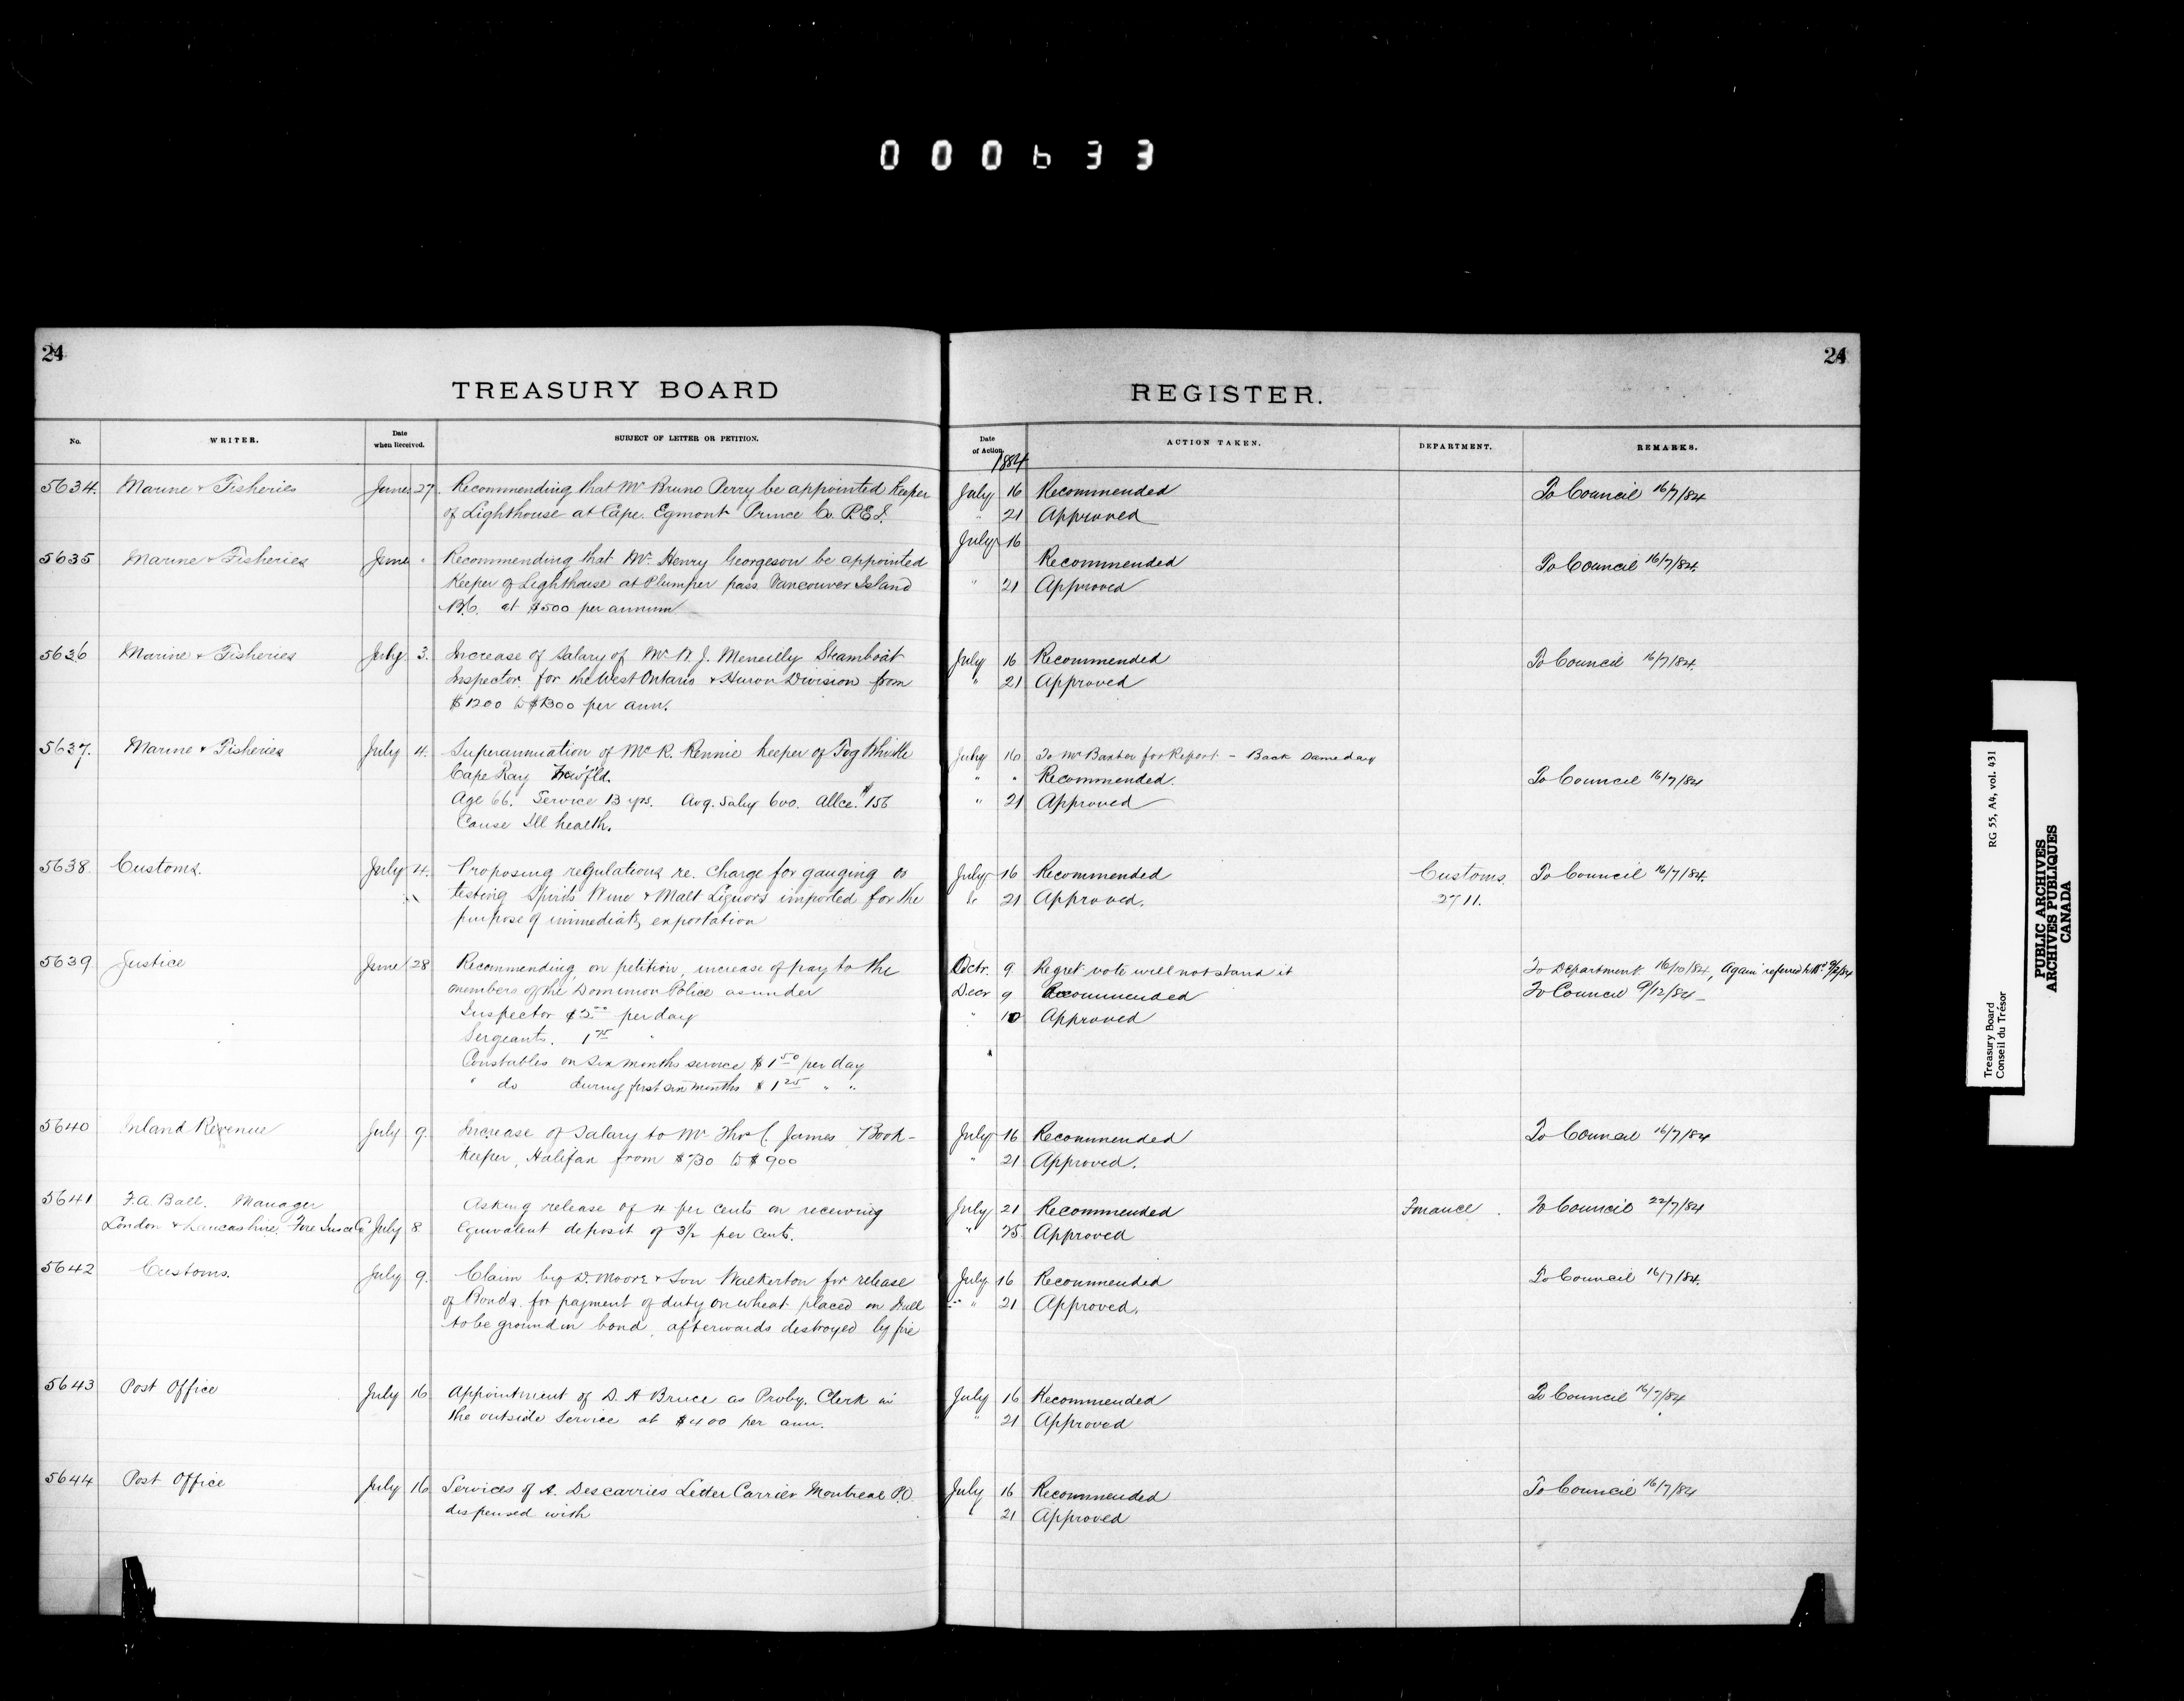 000633
24
TREASURY BOARD
No.
WRITER.
Date when Received.
SUBJECT OF LETTER OR PETITION.
5634. Marine & Fisheries June 27. Recommending that Mr Bruno Perry be appointed Keeper
of Lighthouse at Cape Egmont Prince Co. P.E.I.
5635 Marine & Fisheries June " Recommending that Mr Henry Georgeson be appointed
Keeper of Lighthouse at Plumper pass Vancouver Island
B.C. at $500 per annum
5636 Marine & Fisheries July 3. Increase of Salary of Mr W. J. Meneilly Steamboat
Inspector for the West Ontario & Huron Division from
$1200 to $1300 per ann.
5637. Marine & Fisheries July 4. Superannuation of Mr R. Rennie keeper of Fog Whistle
Cape Ray Newf'ld.
Age 66. Service 13 yrs. Avg. Saly 600. Allce. $156
Cause Ill health.
5638 Customs. July 4. Proposing regulations re. charge for gauging or
testing Spirits Wine & Malt Liquors imported for the
purpose of immediate exportation
5639 Justice June 28 Recommending on petition, increase of pay to the
members of the Dominion Police as under
Inspector $3.00 per day
Sergeants. 1 75 "
Constables on six months service $1 50 per day
" do during first six months $1 25 " "
5640 Inland Revenue July 9. Increase of Salary to Mr Thos C. James Book-
keeper, Halifax from $730 to $900
5641 F.A. Ball. Manager Asking release of 4 per cents on receiving
London & Lancashire Fire Insce Co July 8 Equivalent deposit of 3½ per cents.
5642 Customs. July 9. Claim by D. Moore & Son Walkerton for release
of Bonds for payment of duty on wheat placed in Mill
to be ground in bond, afterwards destroyed by fire
5643 Post Office July 16 Appointment of D. A Bruce as Proby. Clerk in
the outside Service at $400 per ann.
5644 Post Office July 16 Services of A. Descarries Letter Carrier Montreal P.O.
dispensed with
24
REGISTER.
Date of Action.
ACTION TAKEN.
DEPARTMENT.
REMARKS.
1884
July 16 Recommended To Council 16/7/84
" 21 Approved
July 16
Recommended To Council 16/7/84.
" 21 Approved
July 16 Recommended To Council 16/7/84.
" 21 Approved
July 16 To Mr Baxter for Report - Back same day
" " Recommended. To Council 16/7/84
" 21 Approved
July 16 Recommended Customs. To Council 16/7/84.
" 21 Approved. 2711.
Octr. 9 Regret vote will not stand it To Department 16/10/84, Again referred to
Decr 9 Recommended To Council 9/12/84
" 10 Approved
July 16 Recommended To Council 16/7/84
" 21 Approved.
July 21 Recommended Finance. To Council 22/7/84
" 25 Approved
July 16 Recommended To Council 16/7/84.
" 21 Approved.
July 16 Recommended To Council 16/7/84
" 21 Approved
July 16 Recommended To Council 16/7/84
" 21 Approved
Treasury Board
Conseil du Trésor
RG 55, A4, vol. 431
PUBLIC ARCHIVES
ARCHIVES PUBLIQUES
CANADA